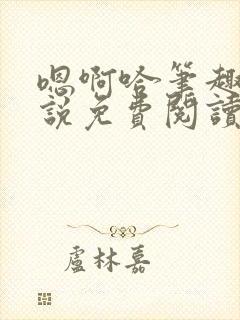 嗯啊哈筆趣
說免費閱讀
盧林嘉